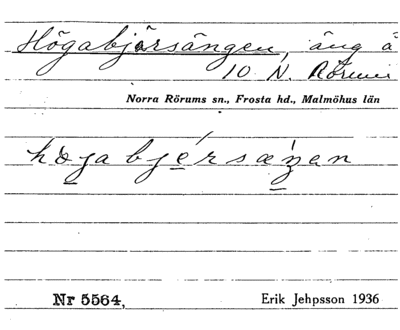 Högabjärsängen, äng å
10 N. Rörum
Norra Rörums sn., Frosta hd., Malmöhus län
højabjérsæŋan
Nr 5564,
Erik Jehpsson 1936